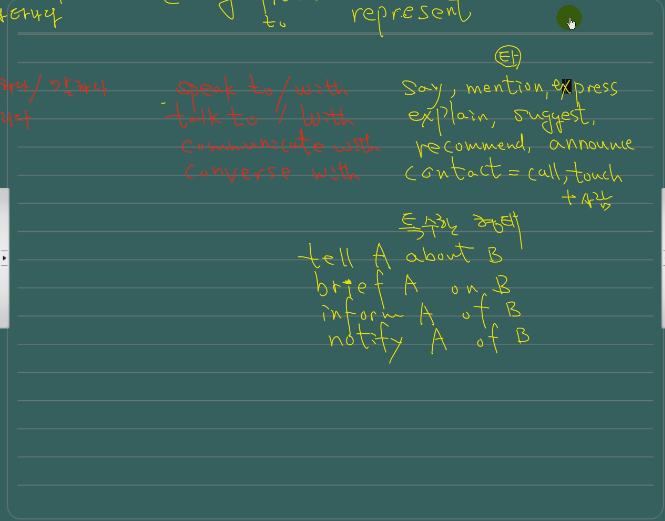 to
represent
타
speak to/with
talk to // with
communicate with
converse with
say, mention, express
explain, suggest,
recommend, announce
contact = call, touch
+ 사람
tell A about B
brief A on B
inform A of B
notify A of B